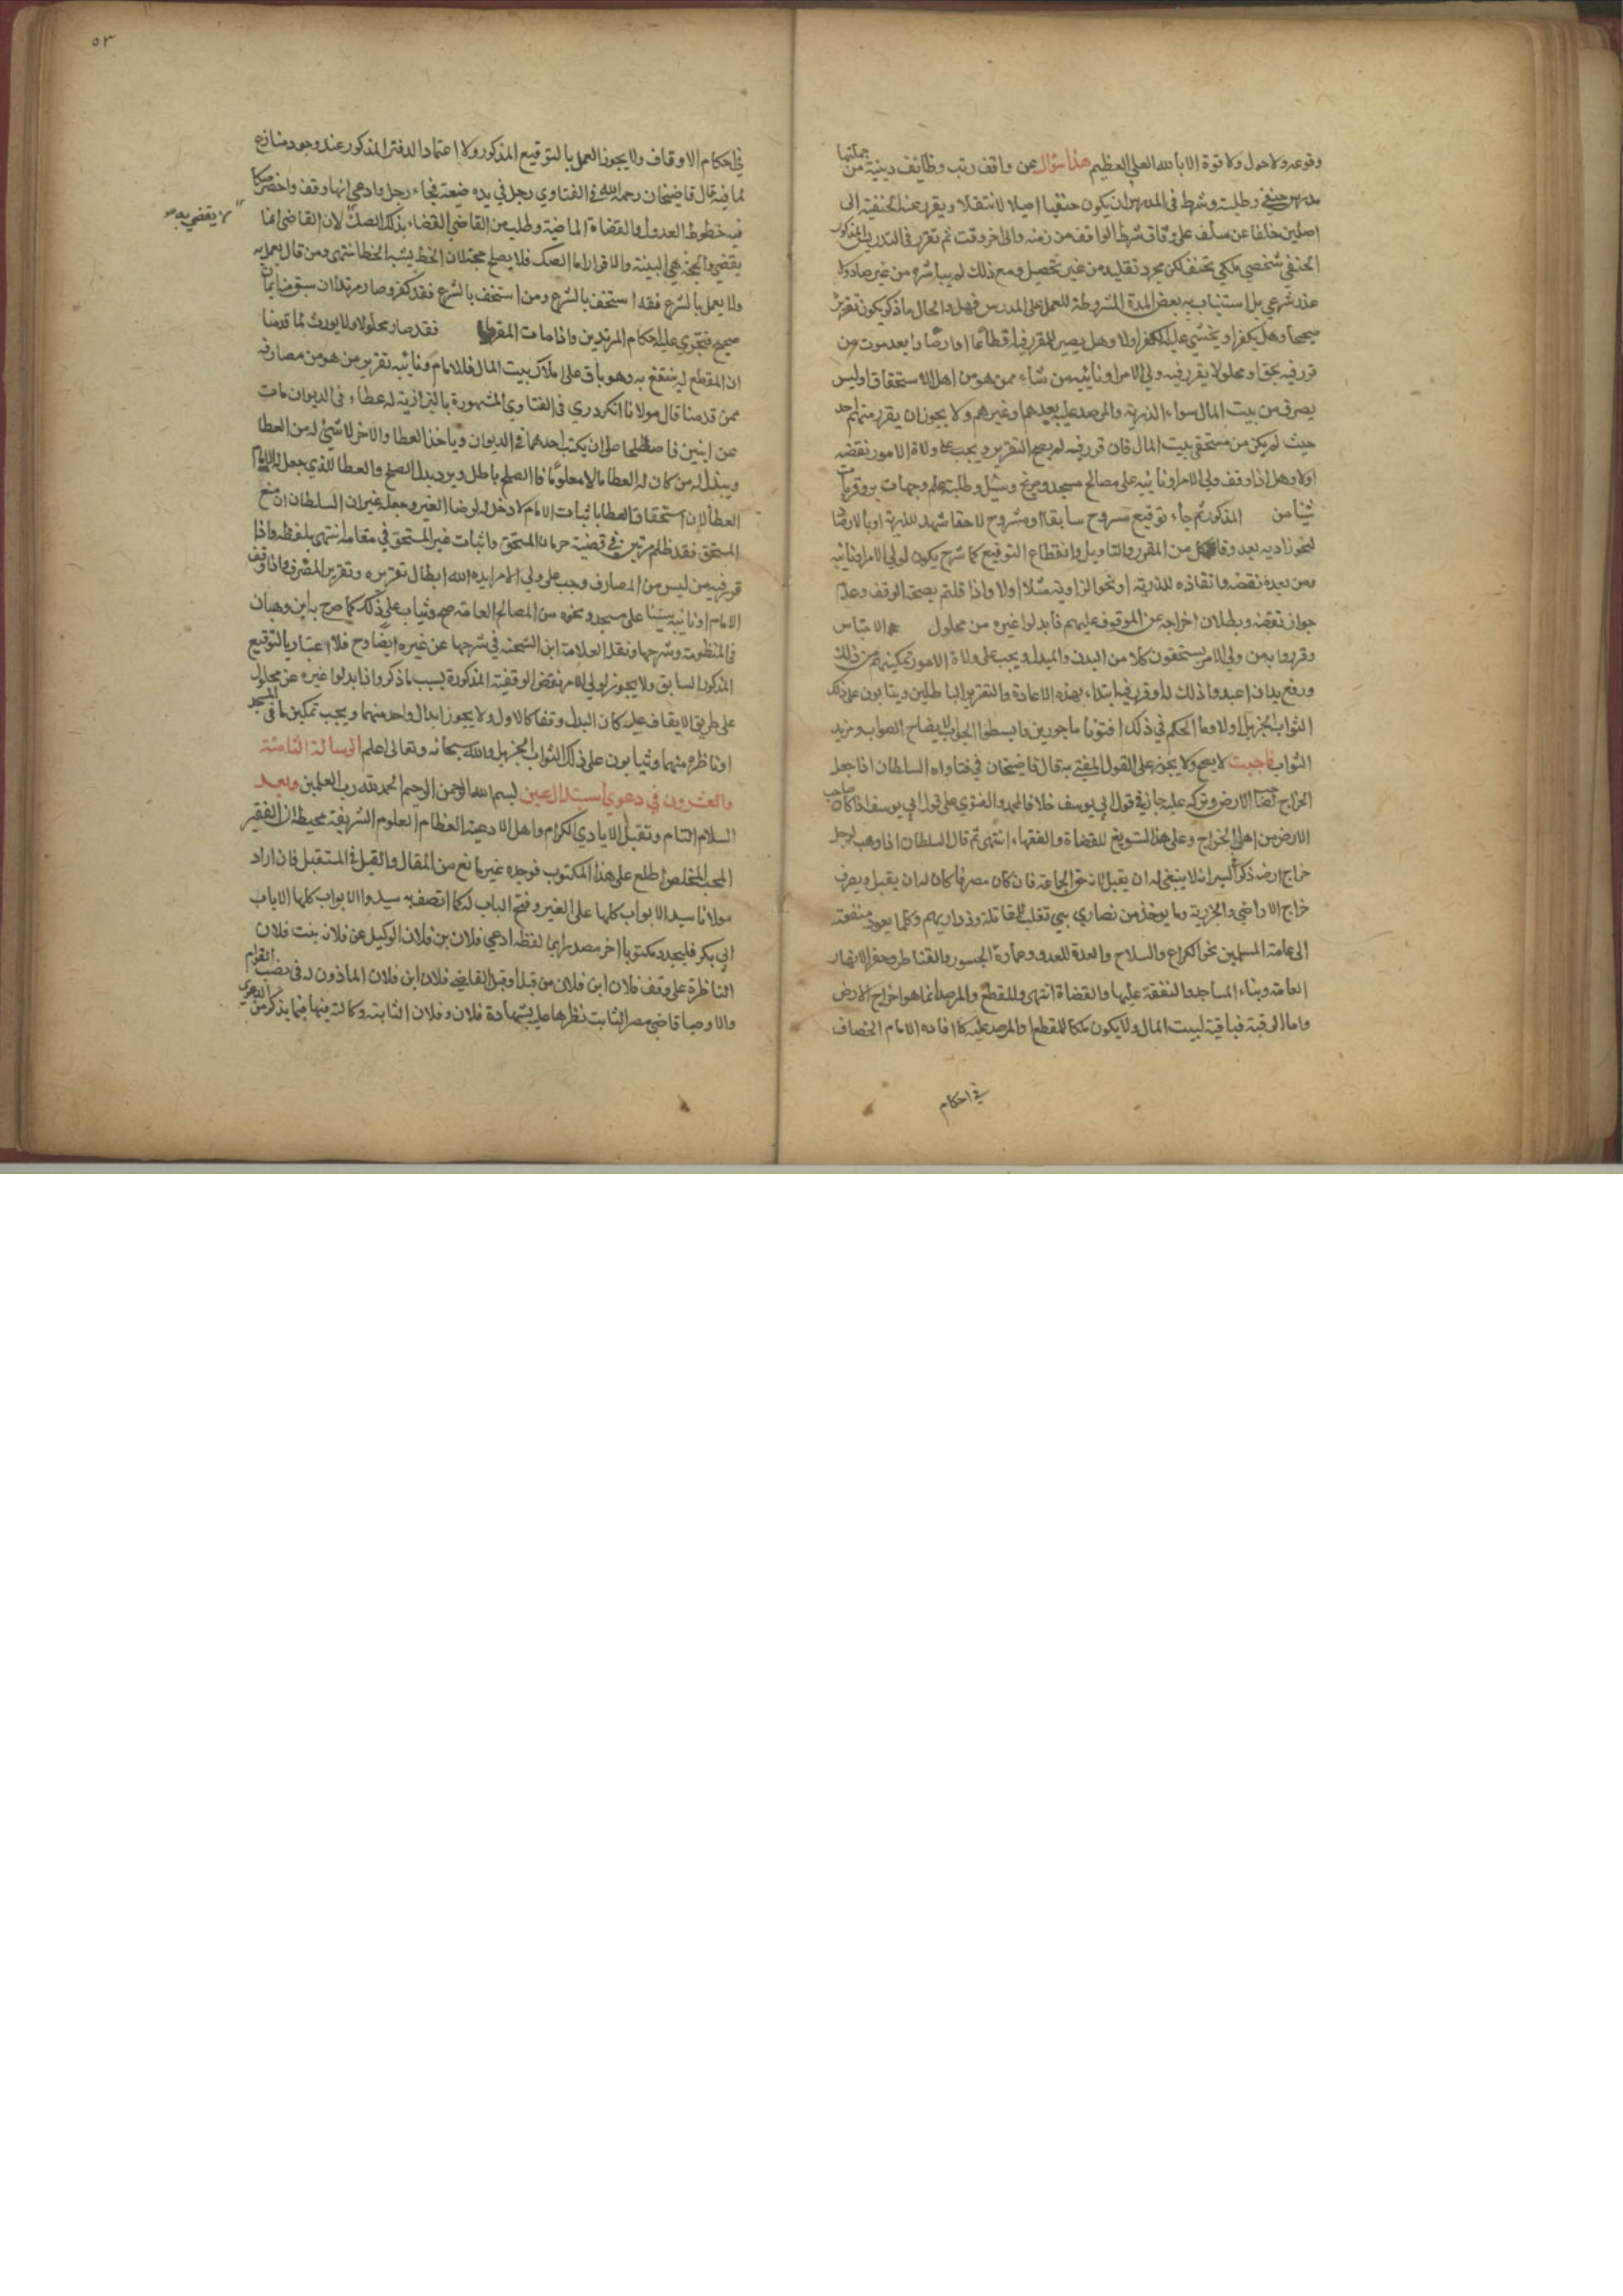 وقوعه ولا حول ولا قوة الا بالله العلي العظيم هذا سؤال عن واقف رتب وظائف دينية من جملتها
مدرس حنفي وطلبته وشرط في المدرس ان يكون حنفيا اصيلا لا منتقلا ويقرر عند الحنفية الى
اصلين خلفا عن سلف على وفاق شرط الواقف من زمنه والى اخر وقت ثم تقرر في التدريس المذكور
الحنفي شخص ملكي تحنف لكن مجرد تقليد من غير تحصيل ومع ذلك لم يباشره من غير صاد ولا
عذر شرعي بل استناب به بعض المدة المشروطة للعمل على المدرس فهل والحال ما ذكر يكون تقريره
صحيحا وهل يكفر او يخشى عليه الكفر اولا وهل يصير المقرر فيه اقطاعا او ارصادا بعد موت من
قرر فيه بحق او محلولا يقرر فيه ولي الامر او نائبه من شاء ممن هو من اهل الاستحقاق او ليس
يصرف من بيت المال سواء الذرية والمرصد عليه بعدهما وغيرهم ولا يجوز ان يقرر منهم احد
حيث لم يكن من مستحقي بيت المال فان قرر فيه لم يصح التقرير ويجب على ولاة الامور نقضه
اولا وهل اذا وقف ولي الامر او نائبه على مصالح مسجد وضريح وسبيل وطلبة علم وجهات بر وقربات
شيئا من المذكور ثم جاء توقيع مشروح سابقا او مشروح لاحقا شهد للذرية او بالارصاد
لنحو زاوية بعد وفاة كل من المقرر والتاويل وانقطاع التوقيع كما شرح يكون لولي الامر او نائبه
ومن بعده نقضه وانفاذه للذرية او نحو الزاوية مثلا اولا واذا قلتم بصحة الوقف وعدم
جواز نقضه وبطلان اخراجه عن الموقوف عليهم فابدلوا غيره من محلول الاحباس
وقرروا به من ولي الامر يستحقون كلا من البدل والمبدل ويجب على ولاة الامور تمكينهم من ذلك
ورفع يد ان اعيدوا ذلك له او قرر فيه ابتداء بهذه الاعادة والتقرير الباطلين ويثابون على ذلك
الثواب الجزيل اولا وما الحكم في ذلك افتونا ماجورين وابسطوا الجواب لايضاح الصواب ومزيد
الثواب فاجبت لا يصح ولا يجوز على القول المفتى به قال قاضيخان في فتاواه السلطان اذا جعل
الخراج لصاحب الارض وتركه عليه جاز في قول ابي يوسف خلافا لمحمد والفتوى على قول ابي يوسف اذا كان صاحب
الارض من اهل الخراج وعلى هذا التسويغ للقضاة والفقهاء انتهى ثم قال السلطان اذا وهب لرجل
خراج ارضه ذكر في السير انه لا ينبغي له ان يقبل لانه حق الجماعة فان كان مصرفا كان له ان يقبل ويصرف
خراج الاراضي والجزية وما يوخذ من نصارى بني تغلب للمقاتلة وذراريهم وكلما يعود منفعته
الى عامة المسلمين نحو الكراع والسلاح والعدة للعدو وعمارة الجسور والقناطر وحفر الانهار
العامة وبناء المساجد والنفقة عليها والقضاة انتهى وللمقطع والمرصد انما هو اخراج الارض
واما الرقبة فباقية لبيت المال ولا يكون ملكا للمقطع او المرصد عليه كما افاده الامام الخصاف
في احكام
٥٣
في احكام الاوقاف ولا يجوز العمل بالتوقيع المذكور ولا اعتماد الدفتر المذكور عند وجود منازع
لما فيه قال قاضيخان رحمه الله في الفتاوي رجل في يده ضيعة فجاء رجل وادعى انها وقف واحضر صكا
فيه خطوط العدول والقضاة الماضية وطلب من القاضي القضاء بذلك الصك لان القاضي انما
لا يقضي به
يقضي والحجة هي البينة والاقرار اما الصك فلا يصلح حجة لان الخط يشبه الخط انتهى ومن قال يعمل به
ولا يعمل بالشرع فقد استخف بالشرع ومن استخف بالشرع فقد كفر وصار مرتدا ان سبق منه ايمان
صحيح فتجري عليه احكام المرتدين واذا مات المقرر فقد صار محلولا ولا يورث لما قدمنا
ان المقطع له ينتفع به وهو باق على ملاك بيت المال فللامام ونائبه تقرير من هو من مصارفه
ممن قدمنا قال مولانا الكردري في الفتاوي المشهورة بالبزازية له عطاء في الديوان مات
عن ابنين فاصطلحا على ان يكتب احدهما في الديوان وياخذ العطا والاخر لا شيء له من العطا
ويبذل له من كان له العطا مالا معلوما فالصلح باطل ويرد بدل الصلح والعطا للذي جعل له الامام
العطا لان استحقاق العطا باثبات الامام لا دخل له لرضا الغير وجعله غير ان السلطان ان منع
المستحق فقد ظلم مرتين في قضية حرمان المستحق واثبات غير المستحق في مقامه انتهى بلفظه واذا
قرر فيه من ليس من المصارف وجب على ولي الامر ايده الله ابطال تقريره وتقرير المصرف واذا وقف
الامام او نائبه شيئا على مسجد ونحوه من المصالح العامة صح ويثاب على ذلك كما صرح به ابن وهبان
في المنظومة وشرحها ونقله العلامة ابن الشحنة في شرحها عن غيره ايضا وح فلا اعتبار بالتوقيع
المذكور السابق ولا يجوز لولي الامر نقض الوقفية المذكورة بسبب ما ذكر واذا ابدلوا غيره عن محلول
على طريق الايقاف عليه كان البدل وقفا كالاول ولا يجوز ابدال واحد منهما ويجب تمكين ما في المسجد
او ناظره منهما ويثابون على ذلك الثواب الجزيل والله سبحانه وتعالى اعلم الرسالة الثامنة
والعشرون في دعوي استبدال عين بسم الله الرحمن الرحيم الحمد لله رب العلمين وبعد
السلام التام وتقبيل الايادي الكرام واهل الادعية العظام العلوم الشريفة محيطة ان الفقير
المحب المخلص اطلع على هذا المكتوب فوجده غير مانع من المقال والقيل في المستقبل فان اراد
مولانا سيد الابواب كلها على الغير وفتح الباب له كما اتصف به سيدوا الابواب كلها الا باب
ابي بكر فليجدد مكتوبا اخر مصدرا بما لفظه ادعي فلان بن فلان الوكيل عن فلانه بنت فلان
الناظرة على وقف فلان ابن فلان من قبل القاضي فلان ابن فلان الماذون له في نصب القوام
والاوصيا قاضي مصر الثابت نظرها عليه بشهادة فلان وفلان الثابتة وكالته فيها فيما يذكر من الدعوى